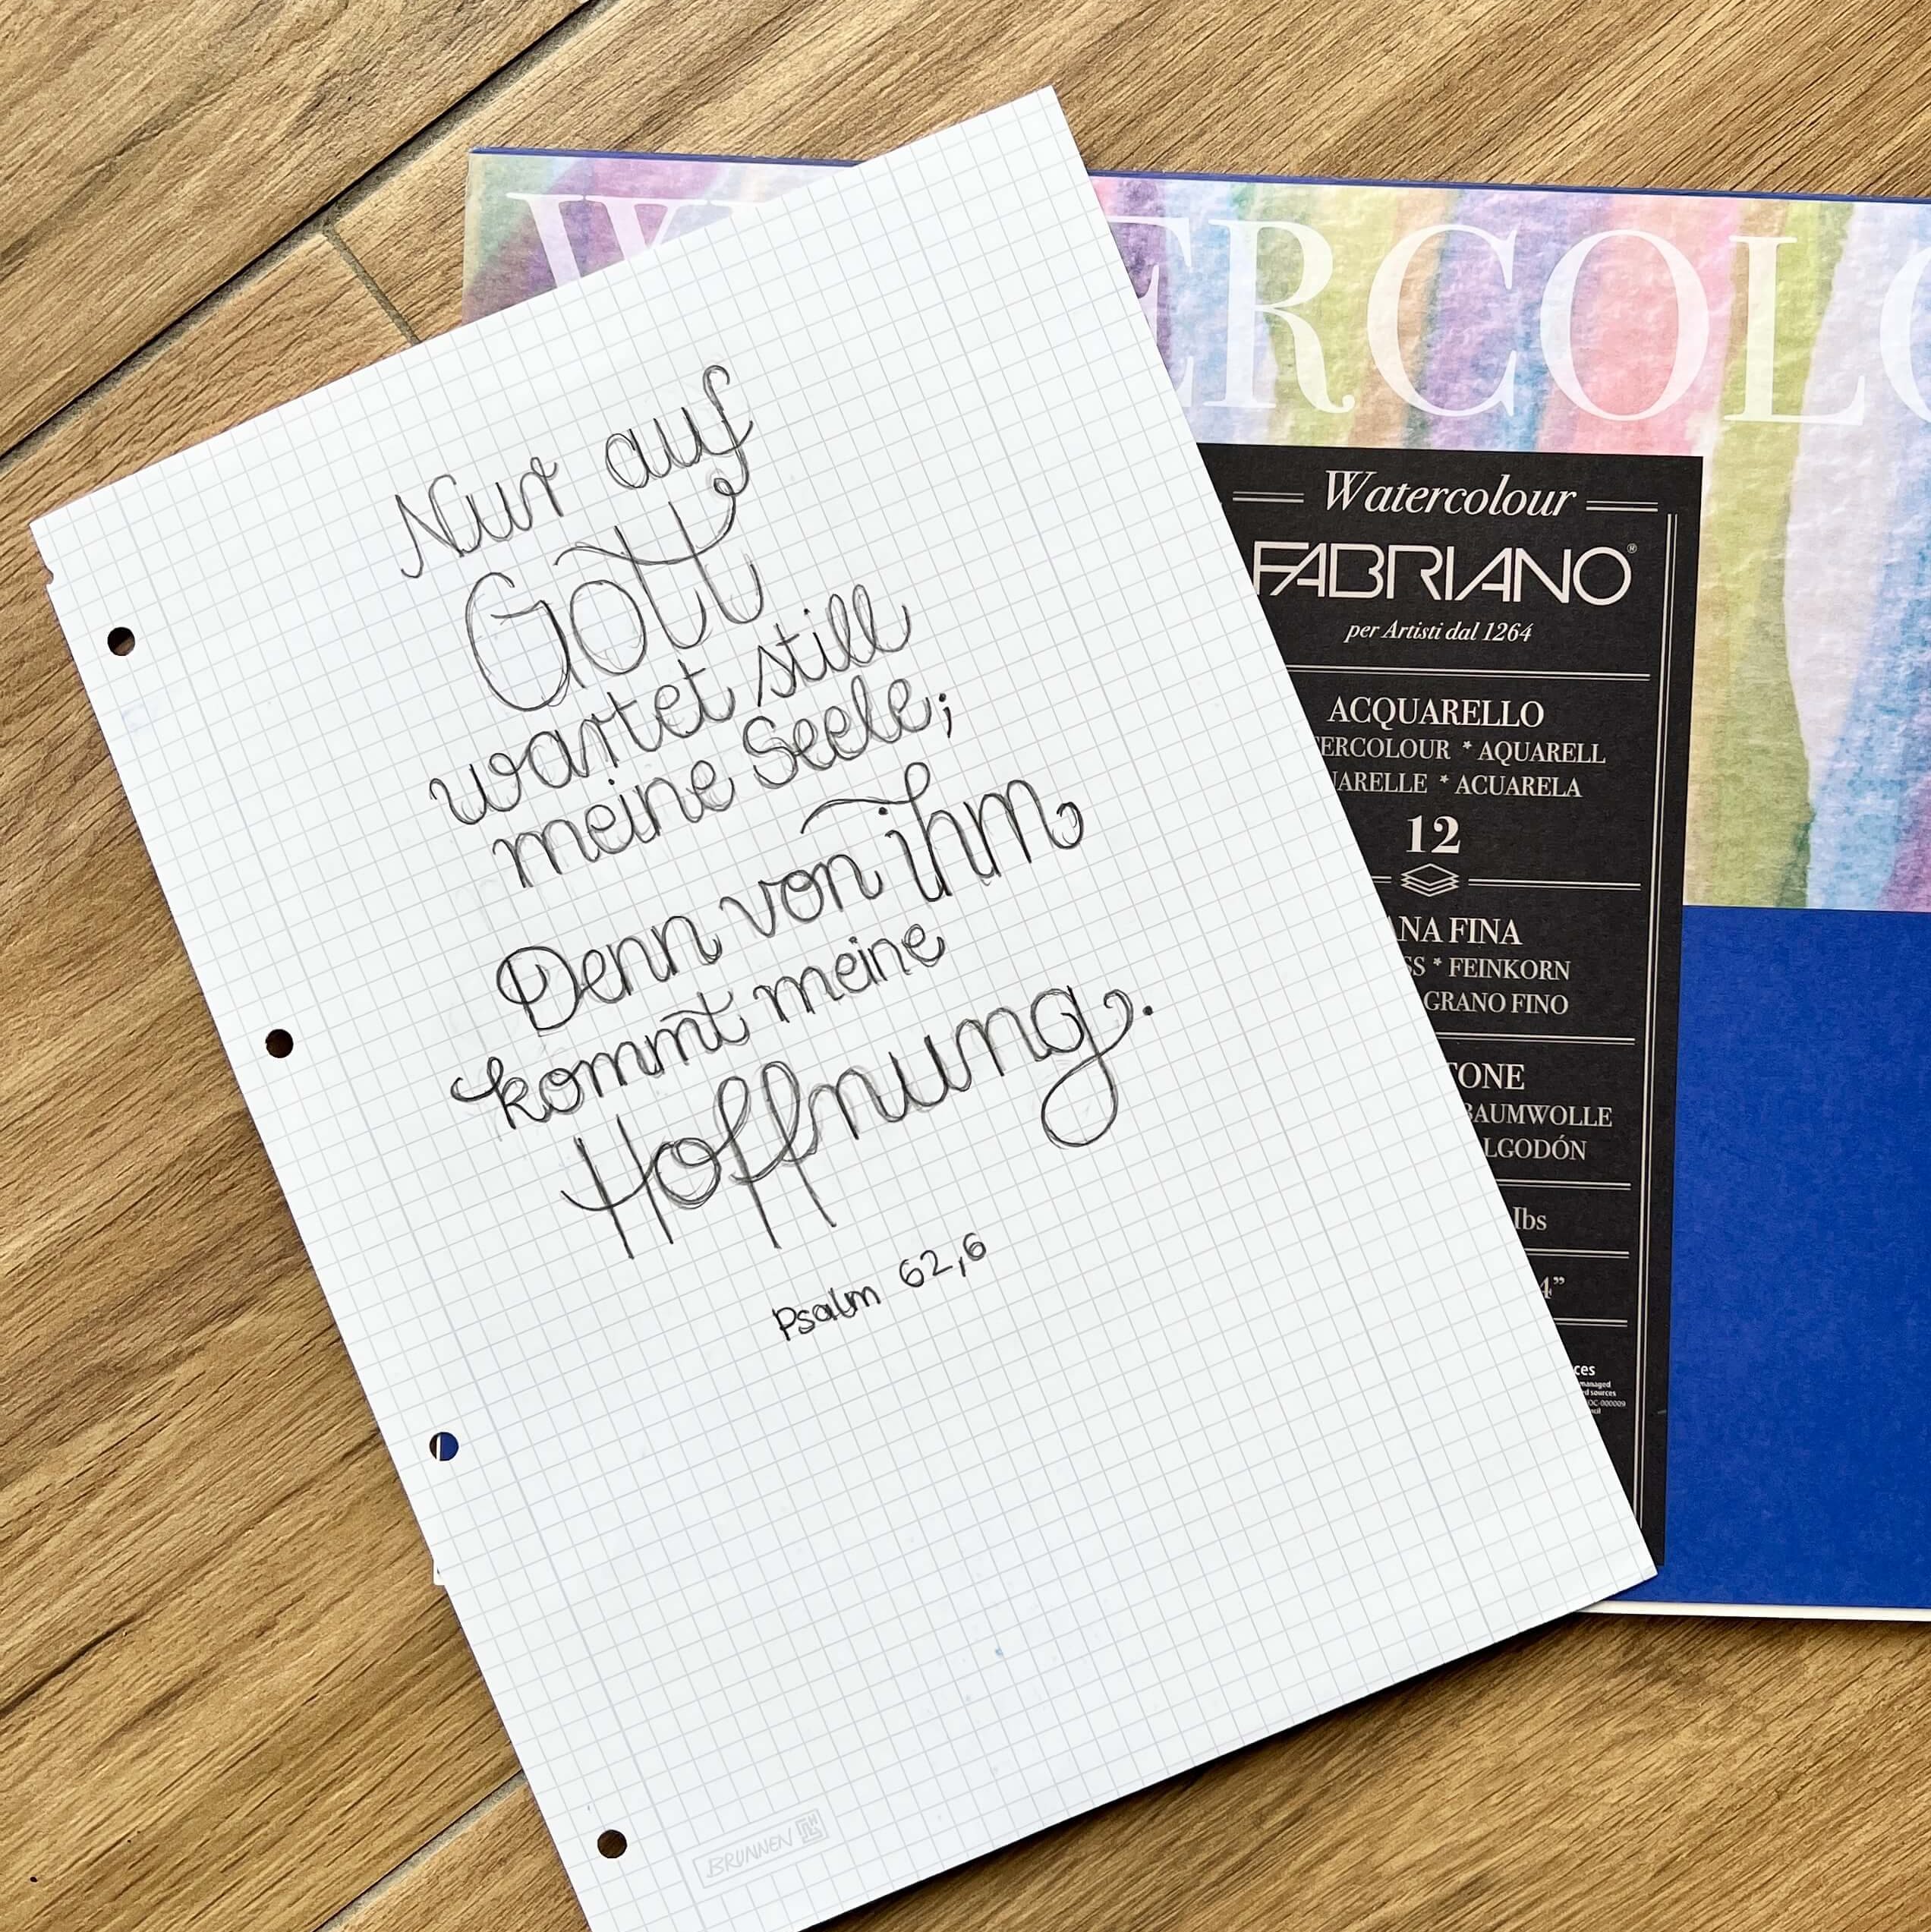 Nur auf
Gott
wartet still
meine Seele;
Denn von ihm
kommt meine
Hoffnung.
Psalm 62,6
BRUNNEN
W ERCOLO
Watercolour
FABRIANO®
per Artisti dal 1264
ACQUARELLO
ERCOLOUR * AQUARELL
ARELLE * ACUARELA
12
NA FINA
SS * FEINKORN
GRANO FINO
TONE
BAUMWOLLE
LGODÓN
lbs
4”
ces
managed
ed sources
OC-000009
ncil